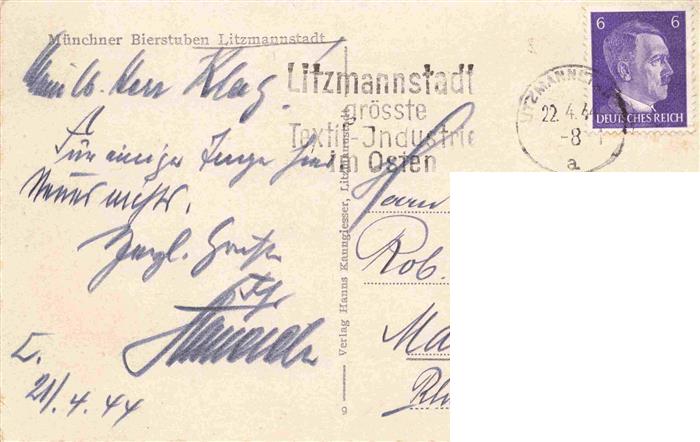 Münchner Bierstuben Litzmannstadt
Mein lb. Herr Klag.
Für einige Tage hier
Neues nichts.
Herzl. Grüße
Ihr
L.
21/.4.44
Verlag Hanns Kanngiesser, Litzmannstadt
9
Litzmannstadt
grösste
Textil-Industrie
im Osten
LITZMANNSTADT
22.4.44
-8
a
6 6
DEUTSCHES REICH
Herrn
Rob.
Ma
Rh